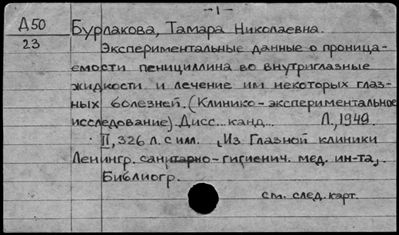 -1-
Д50 Бурлакова, Тамара Николаевна.
23 Экспериментальные данные о проница-
емости пенициллина во внутриглазные
жидкости и лечение им некоторых глаз-
ных болезней. (Клинико-экспериментальное
исследование). Дисс... канд... Л., 1949.
II, 326 л. с илл. (Из Глазной клиники
Ленингр. санитарно-гигиенич. мед. ин-та).
Библиогр.
см. след. карт.